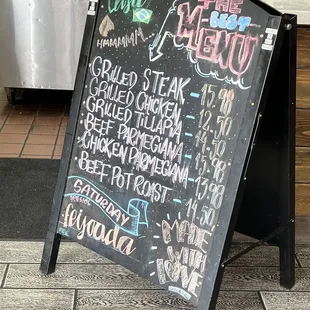 THE
BEST
MENU
HMMMMMM
GRILLED STEAK - 15.98
GRILLED CHICKEN - 12.50
GRILLED TILLAPIA - 14.50
BEEF PARMEGIANA - 15.98
CHICKEN PARMEGIANA - 13.98
BEEF POT ROIST - 14.50
SATURDAY
SPECIAL
feijoada
MADE
WITH
LOVE